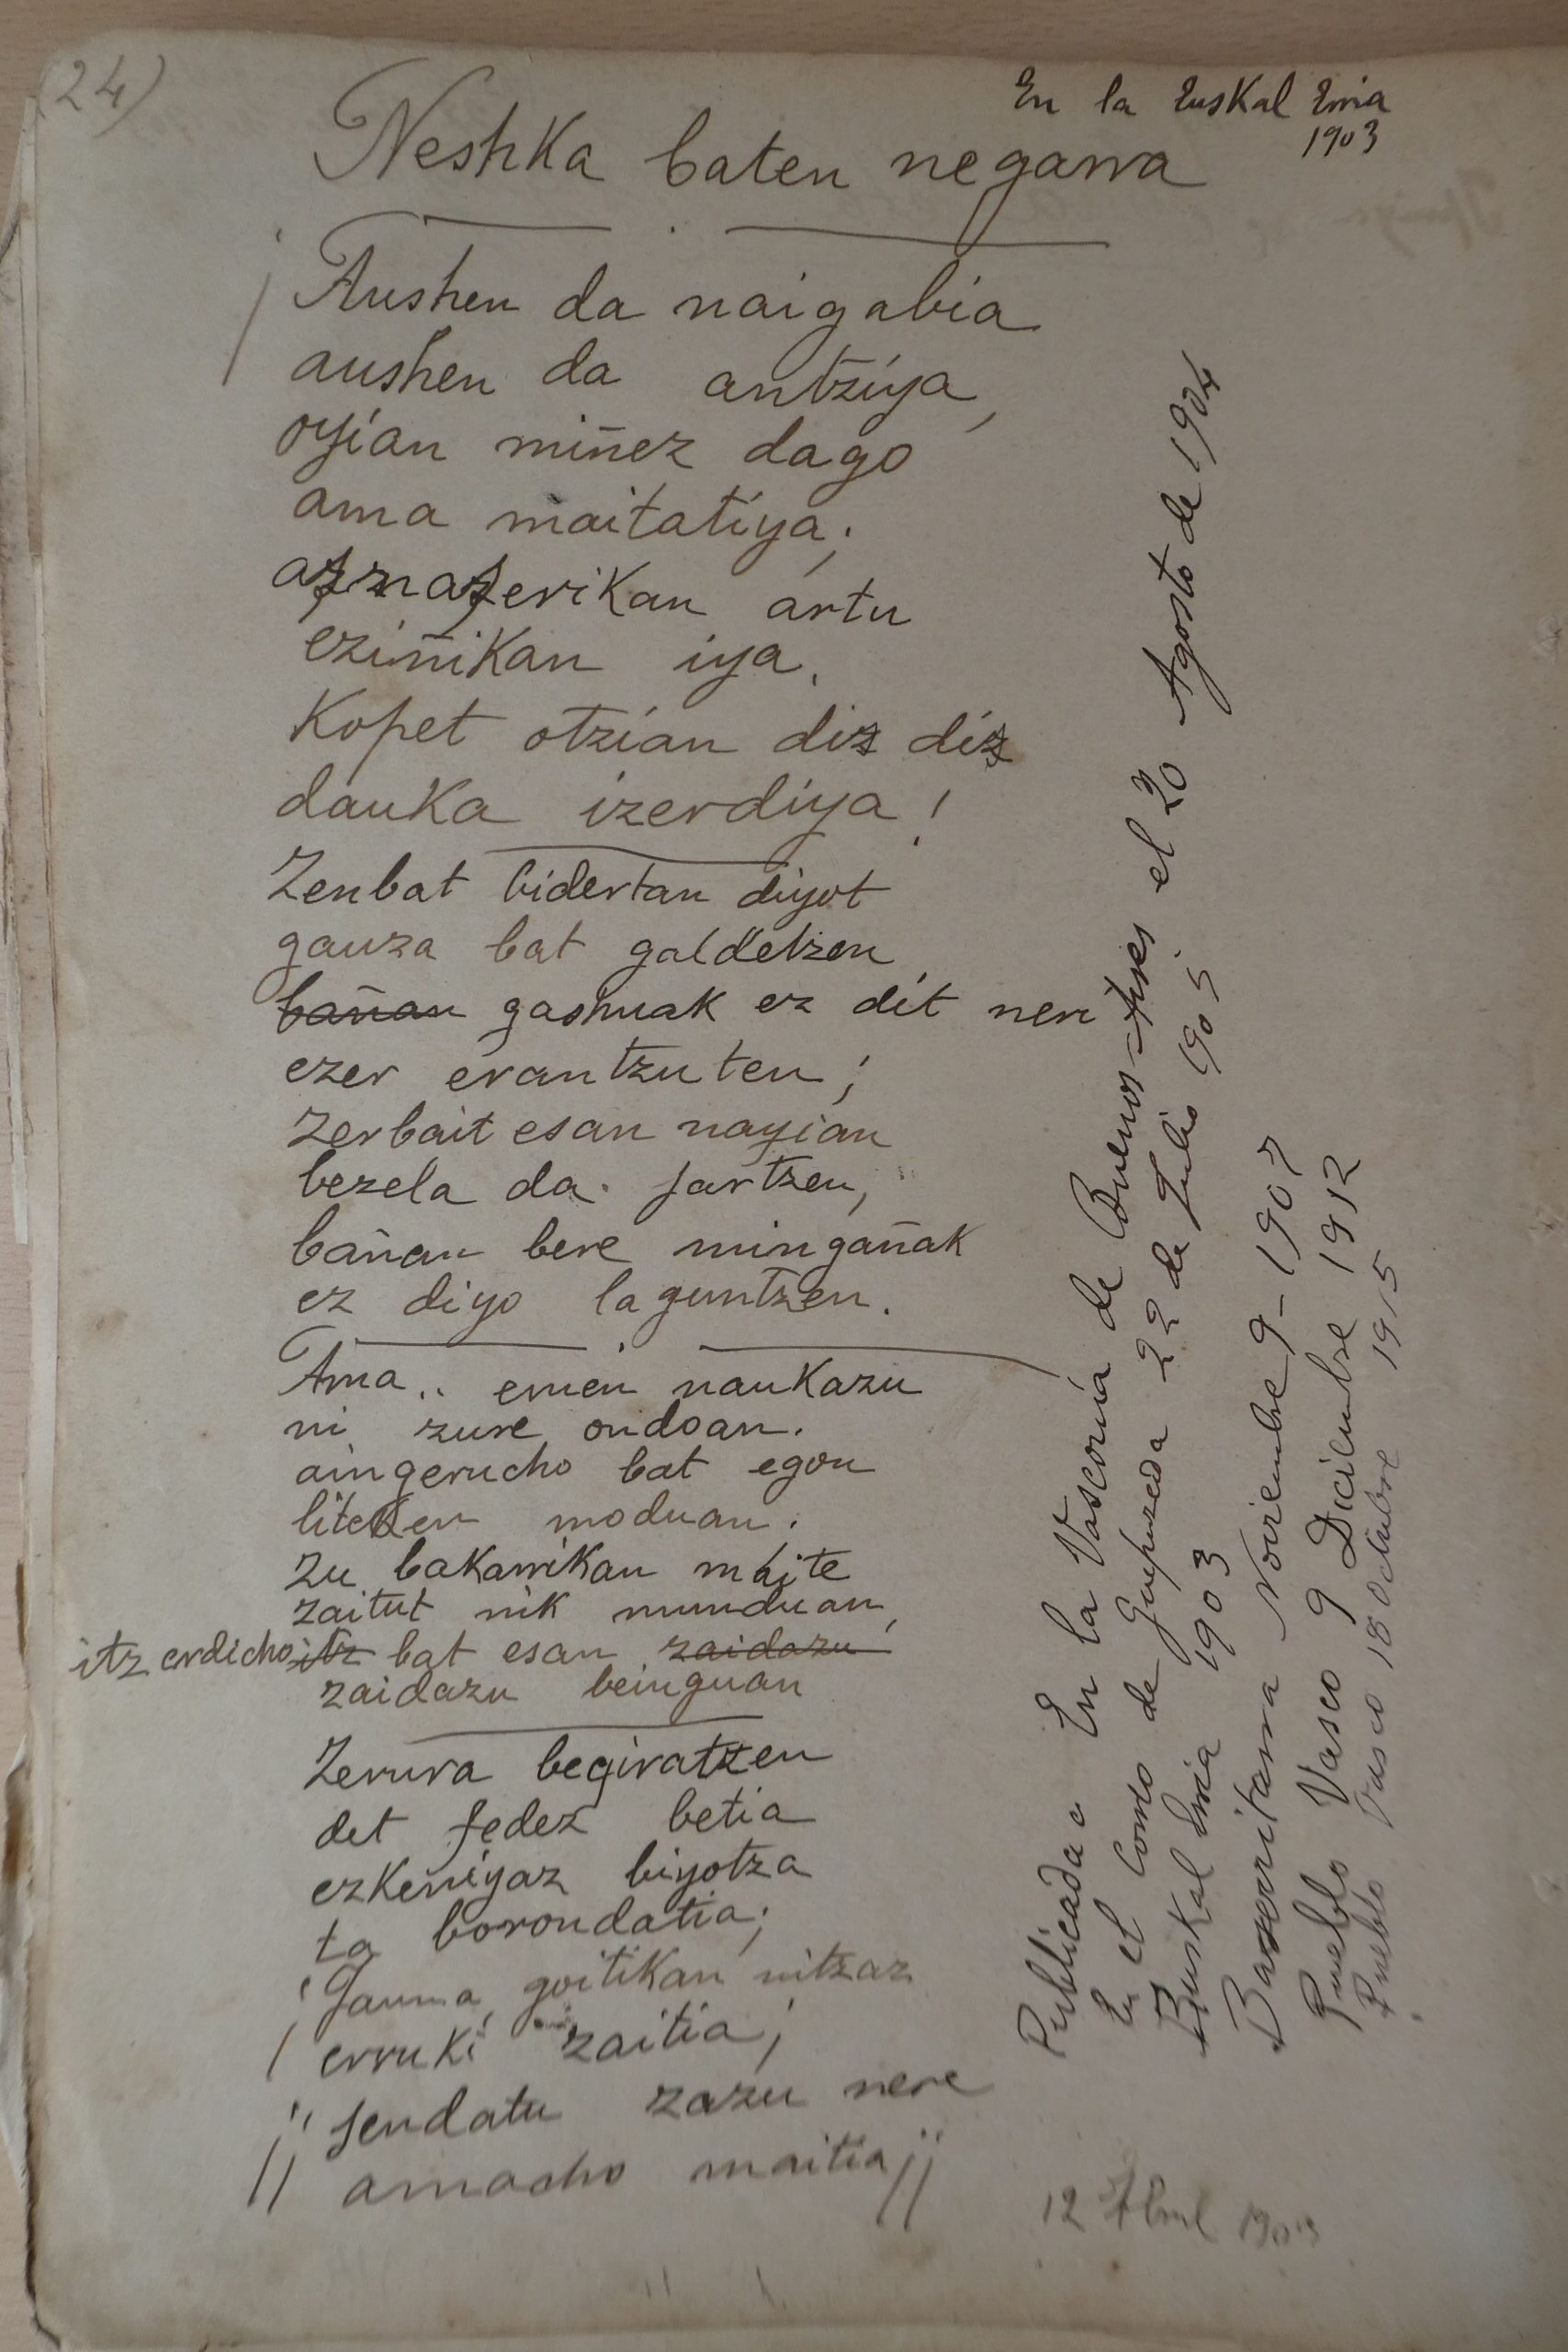 24)
En la Euskal Erria
1903
Neshka baten negarra
¡Aushen da naigabia
aushen da antziya,
oyian miñez dago
ama maitatiya;
aznazerikan artu
eziñikan iya,
Kopet otzian diz diz
dauka izerdiya!
Zenbat bidertan diyot
gauza bat galdetzen,
bañan gashuak ez dit neri
ezer erantzuten;
zerbait esan nayian
bezela da jartzen,
bañan bere mingañak
ez diyo laguntzen.
Ama.. emen naukazu
ni zure ondoan.
aingerucho bat egon
liteken moduan.
zu bakarrikan maite
zaitut nik munduan,
itz erdicho itz bat esan zaidazu
zaidazu beinguan
Zerura begiratzen
det fedez betia
ezkeniyaz biyotza
ta borondatia;
¡Jauna, goitikan nitzaz
erruki zaitia;
¡¡ sendatu zazu nere
amacho maitia!!
12 Abril 1903
Publicada en En la Vasconia de Buenos-Aires el 20 Agosto de 1904
En el Correo de Guipuzcoa 22 de Julio 1905
Euskal Erria 1903
Baserritarra Noviembre 9-1907
Pueblo Vasco 9 Diciembre 1912
Pueblo Vasco 18 Octubre 1915